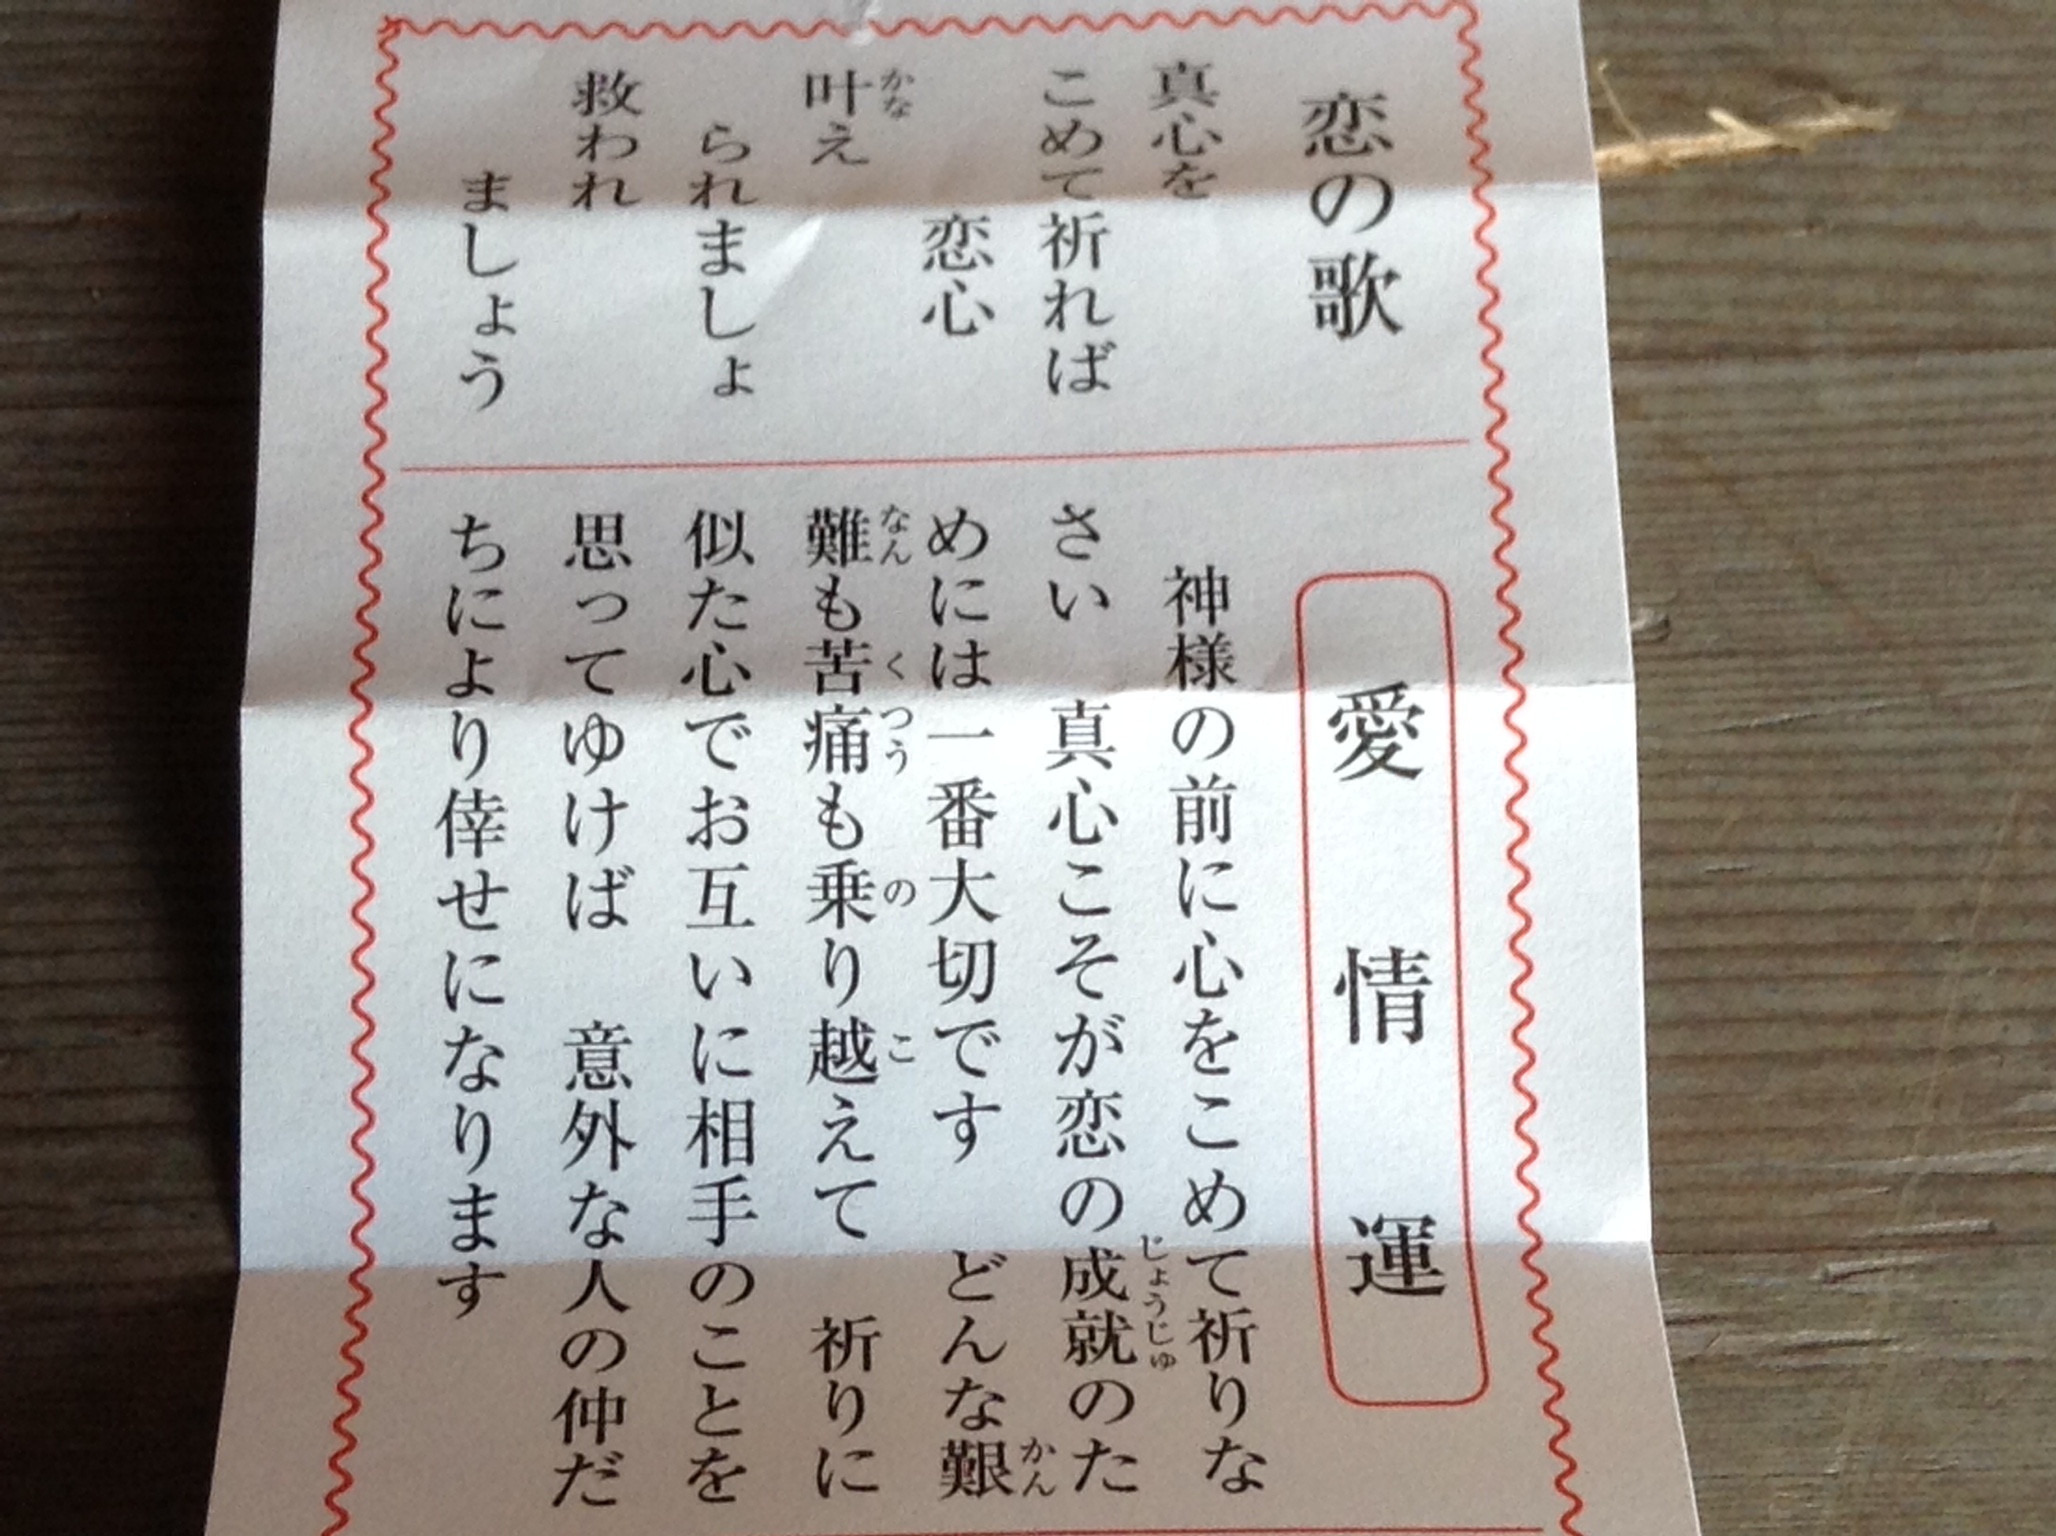 恋の歌
真心を
こめて祈れば
恋心
叶え
かな
られましょ
救われ
ましょう
愛情運
神様の前に心をこめて祈りな
さい 真心こそが恋の成就のた
じょうじゅ
めには一番大切です どんな艱
かん
難も苦痛も乗り越えて 祈りに
なん く つう の こ
似た心でお互いに相手のことを
思ってゆけば 意外な人の仲だ
ちにより倖せになります